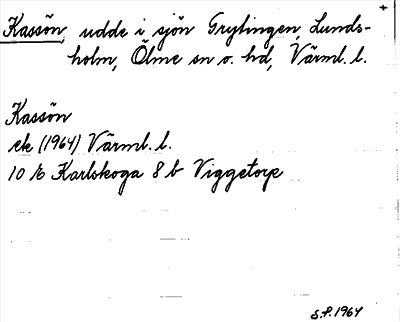 Kassön, udde i sjön Gryttingen, Lunds-
holm, Ölme sn o. hd, Värml. l.
Kassön
ek (1964) Värml. l.
10 16 Karlskoga 8 b Viggetorp
S.P. 1964